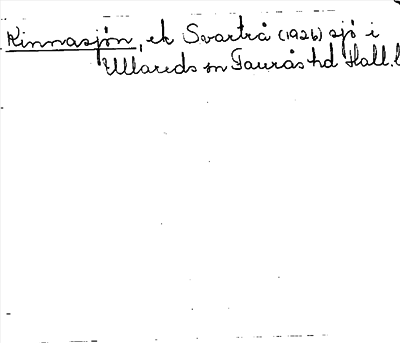 Kinnasjön, ek Svartrå (1926) sjö i
Ullareds sn Faurås hd Hall. l